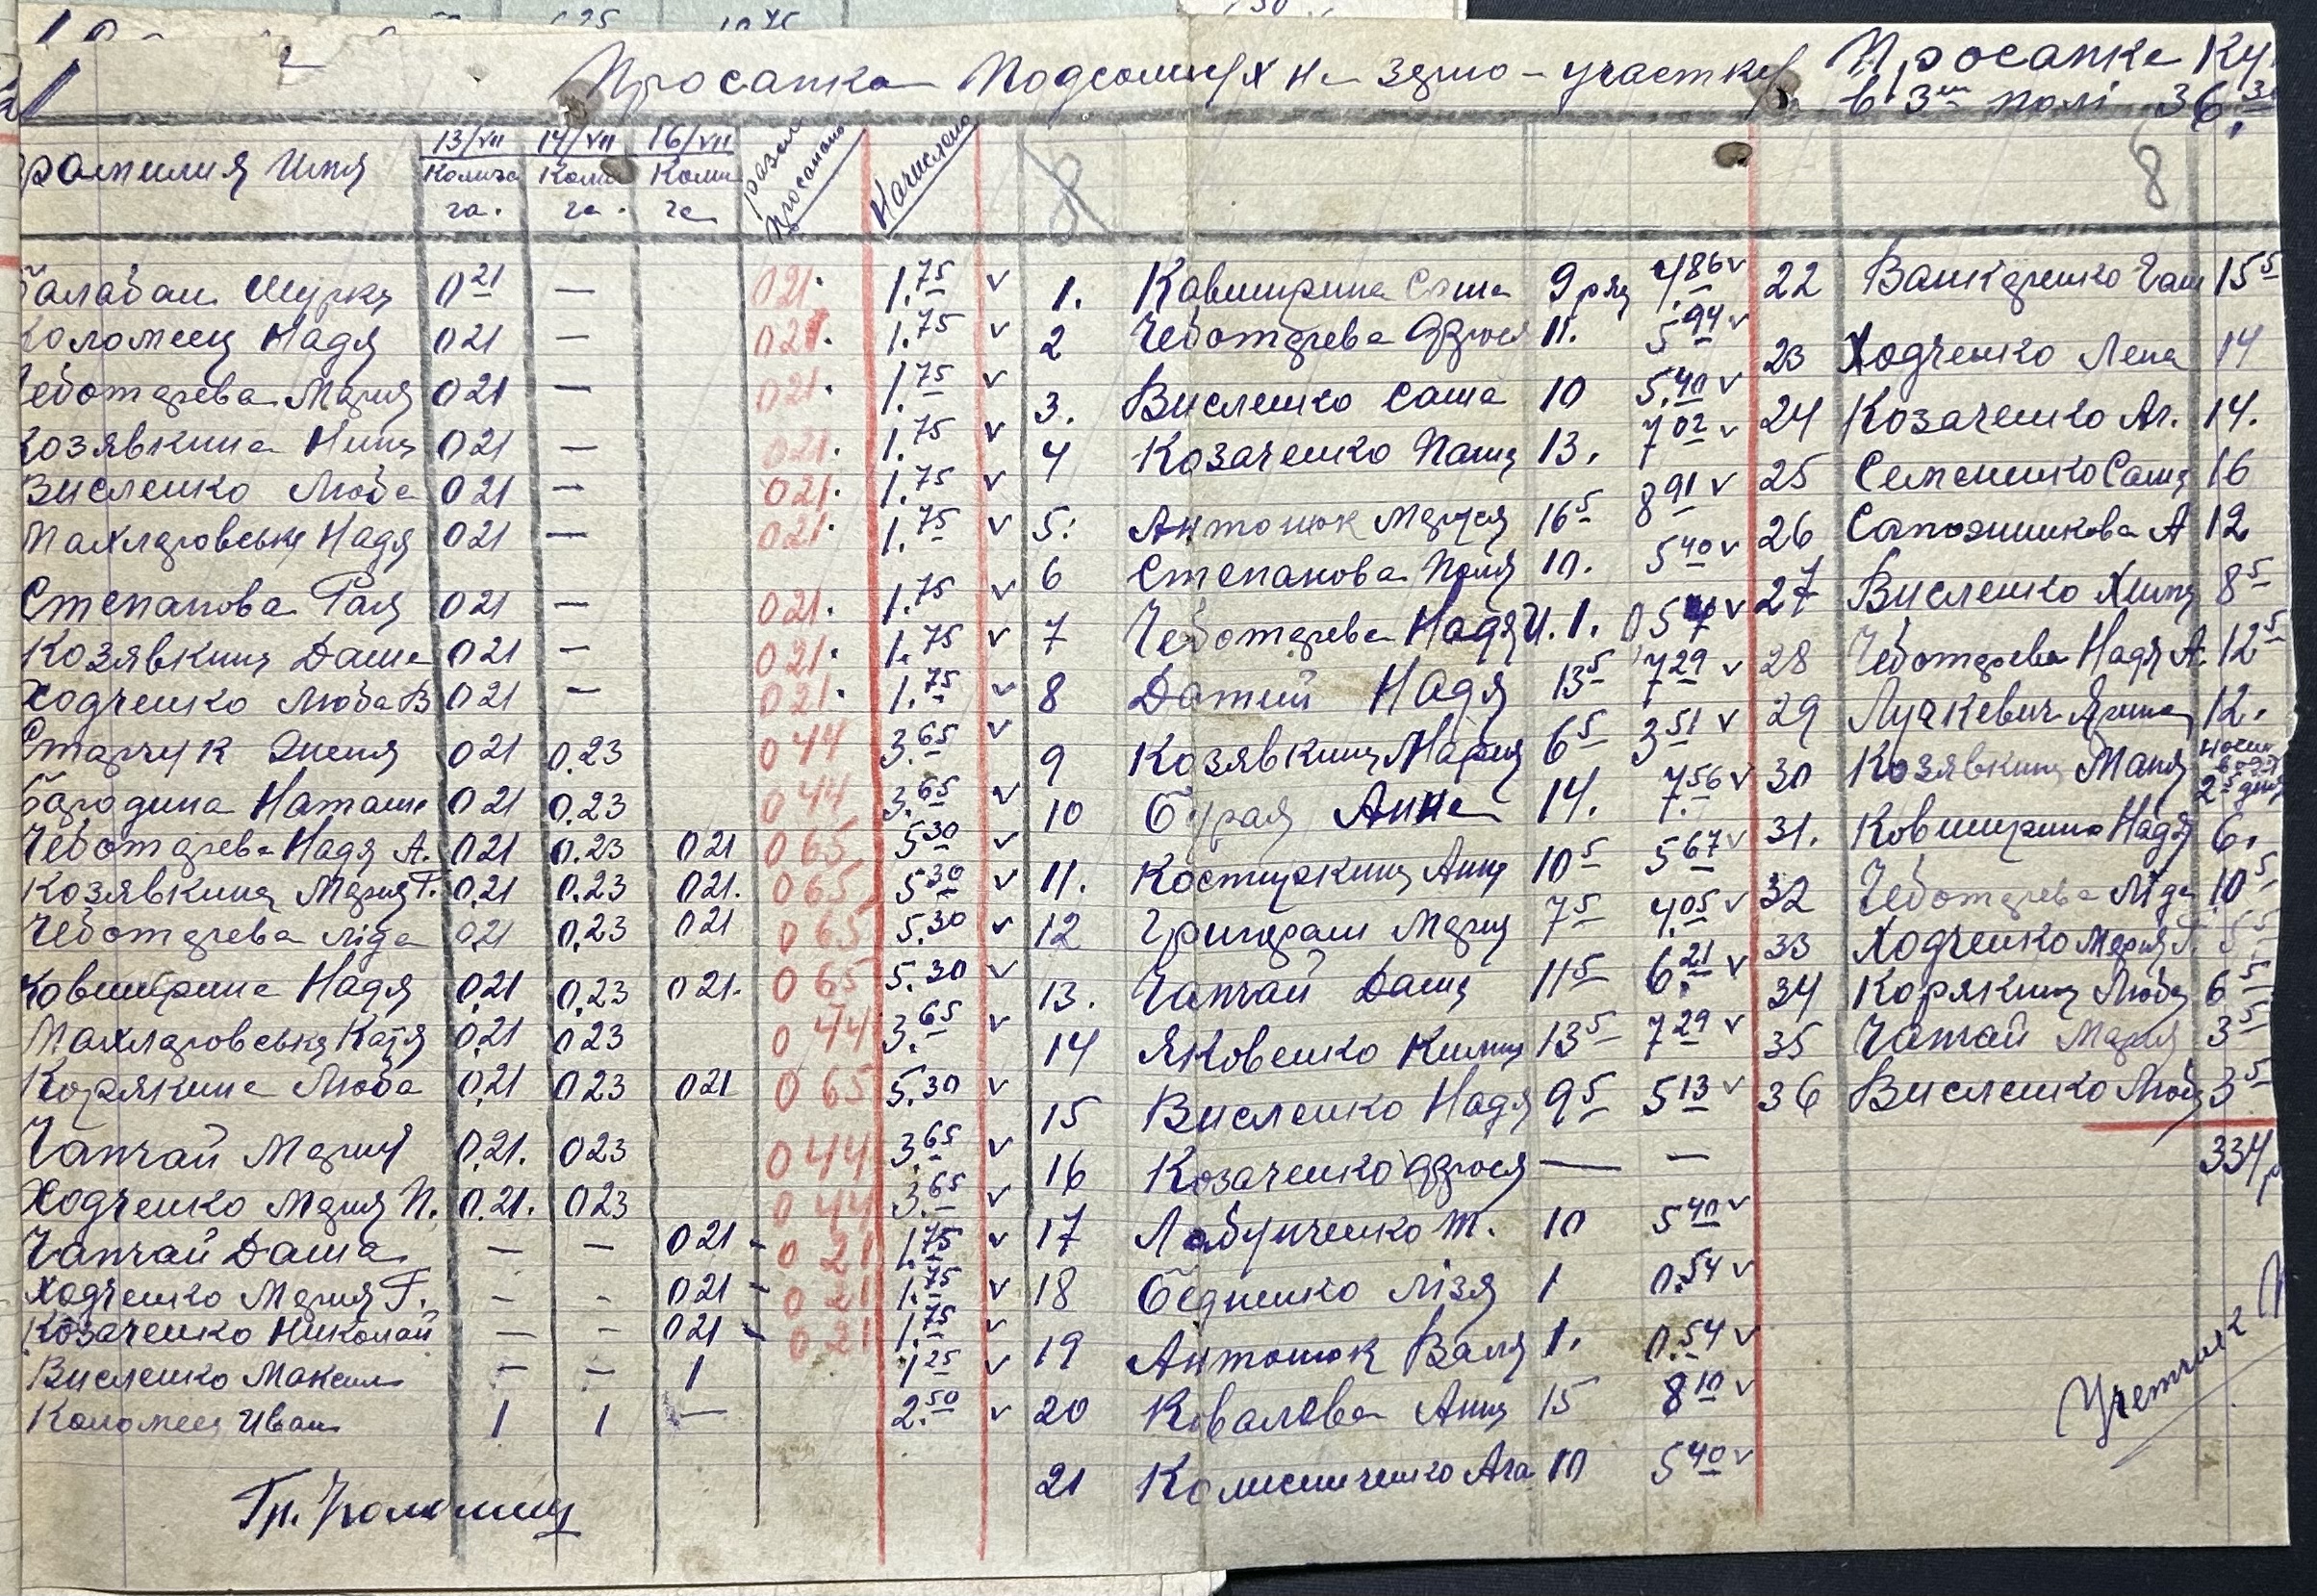 Просапка Подсолнух на зерно - участку
Просапка Ку
в 3ем полі 36.
Фамилия Имя 13/VII 14/VII 16/VII разом просапано Начислено 8 8
Колич. га. Колич га. Колич га
Балабан Шурка 021 — 021. 1.75 v
Коломеец Надя 021 — 021. 1.75 v
Чеботарева Мария 021 — 021. 1.75 v
Козявкина Нина 021 — 021. 1.75 v
Висленко Люба 021 — 021. 1.75 v
Махляровська Надя 021 — 021. 1.75 v
Степанова Галя 021 — 021. 1.75 v
Козявкина Даша 021 — 021. 1.75 v
Ходченко Люба В 021 — 021. 1.75 v
Старчук 021 0.23 044 3.65 v
Бородина Наташа 021 0.23 044 3.65 v
Чеботарева Надя А. 021 0.23 021 065 5.30 v
Козявкина Мария Г. 0.21 0.23 021. 065 5.30 v
Чеботарева Ліда 0.21 0.23 021 065 5.30 v
Ковширина Надя 0.21 0.23 021. 065 5.30 v
Махляровська Катя 0.21 023 044 3.65 v
Корякина Люба 0.21 023 021 065 5.30 v
Чапчай Мария 0.21. 023 044 3.65 v
Ходченко Мария П. 0.21. 023 044 3.65 v
Чапчай Даша — — 021 - 021 1.75 v
Ходченко Мария Г. - - 021 - 021 1.75 v
Козаченко Николай — - 021 - 021 1.75 v
Висленко Максим — — 1 1.25 v
Коломеец Иван 1 1 — 2.50 v
1. Ковширина Саша 9 ряд 4.86 v
2 Чеботарева Фрося 11. 5.94 v
3. Висленко Саша 10 5.40 v
4 Козаченко Паша 13. 7 02 v
5. Антонюк Маруся 16 5 8 91 v
6 Степанова Поля 10. 5 40 v
7 Чеботарева Надя И. 1. 0 54 v
8 Датий Надя 13 5 7 29 v
9 Козявкина Мария 6 5 3 51 v
10 Бурая Анна 14. 7.56 v
11. Костиркина Анна 10 5 5 67 v
12 Григораш Мария 7 5 4.05 v
13. Чапчай Даша 11 5 6.21 v
14 Яковенко 13 5 7 29 v
15 Висленко Надя 9 5 5 13 v
16 Козаченко Фрося — —
17 Лабунченко М. 10 5 40 v
18 Бедненко Лізя 1 0.54 v
19 Антонюк Валя 1. 0.54 v
20 Ковалова Анна 15 8 10 v
21 Колисниченко Ага 10 5 40 v
22 15 5
23 Ходченко Лена 14
24 Козаченко Аг. 14.
25 Семененко Саша 16
26 Сапожникова А 12
27 Висленко 8 5
28 Чеботарева Надя А. 12 5
29 Лучкевич Ярина 12.
30 Козявкина Маня
2 5 дня
31. Ковширина Надя 6.
32 Чеботарева Ліда 10 5
33 Ходченко Мария Г. 5 5
34 Корякина Люба 6 5
35 Чапчай Мария 3 5
36 Висленко Люба 3 5
334 р
Учетчик